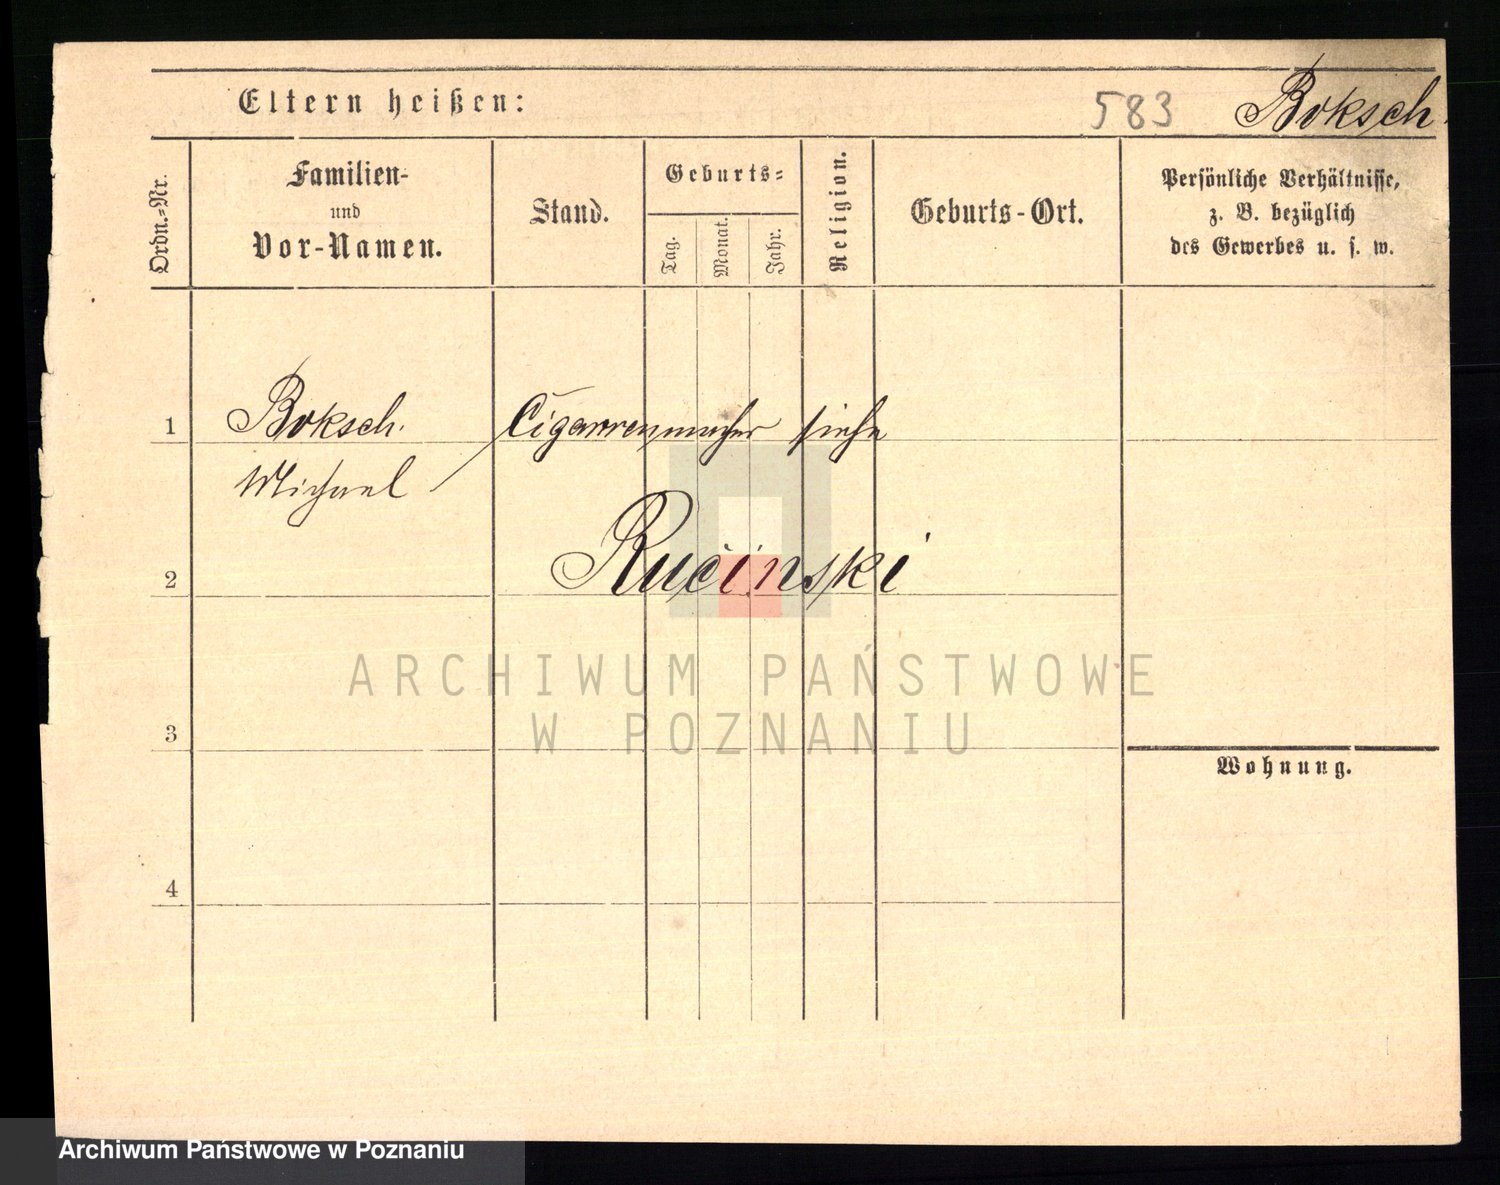 Eltern heißen: 583 Boksch.
Ordn.=Nr.
Familien-
und
Vor-Namen.
Stand.
Geburts=
Tag.
Monat.
Jahr.
Religion.
Geburts-Ort.
Persönliche Verhältnisse,
z. B. bezüglich
des Gewerbes u. s. w.
1 Boksch. Cigarrenmacher siehe
Michael
2 Rucinski
ARCHIWUM PAŃSTWOWE
W POZNANIU
3
Wohnung.
4
Archiwum Państwowe w Poznaniu